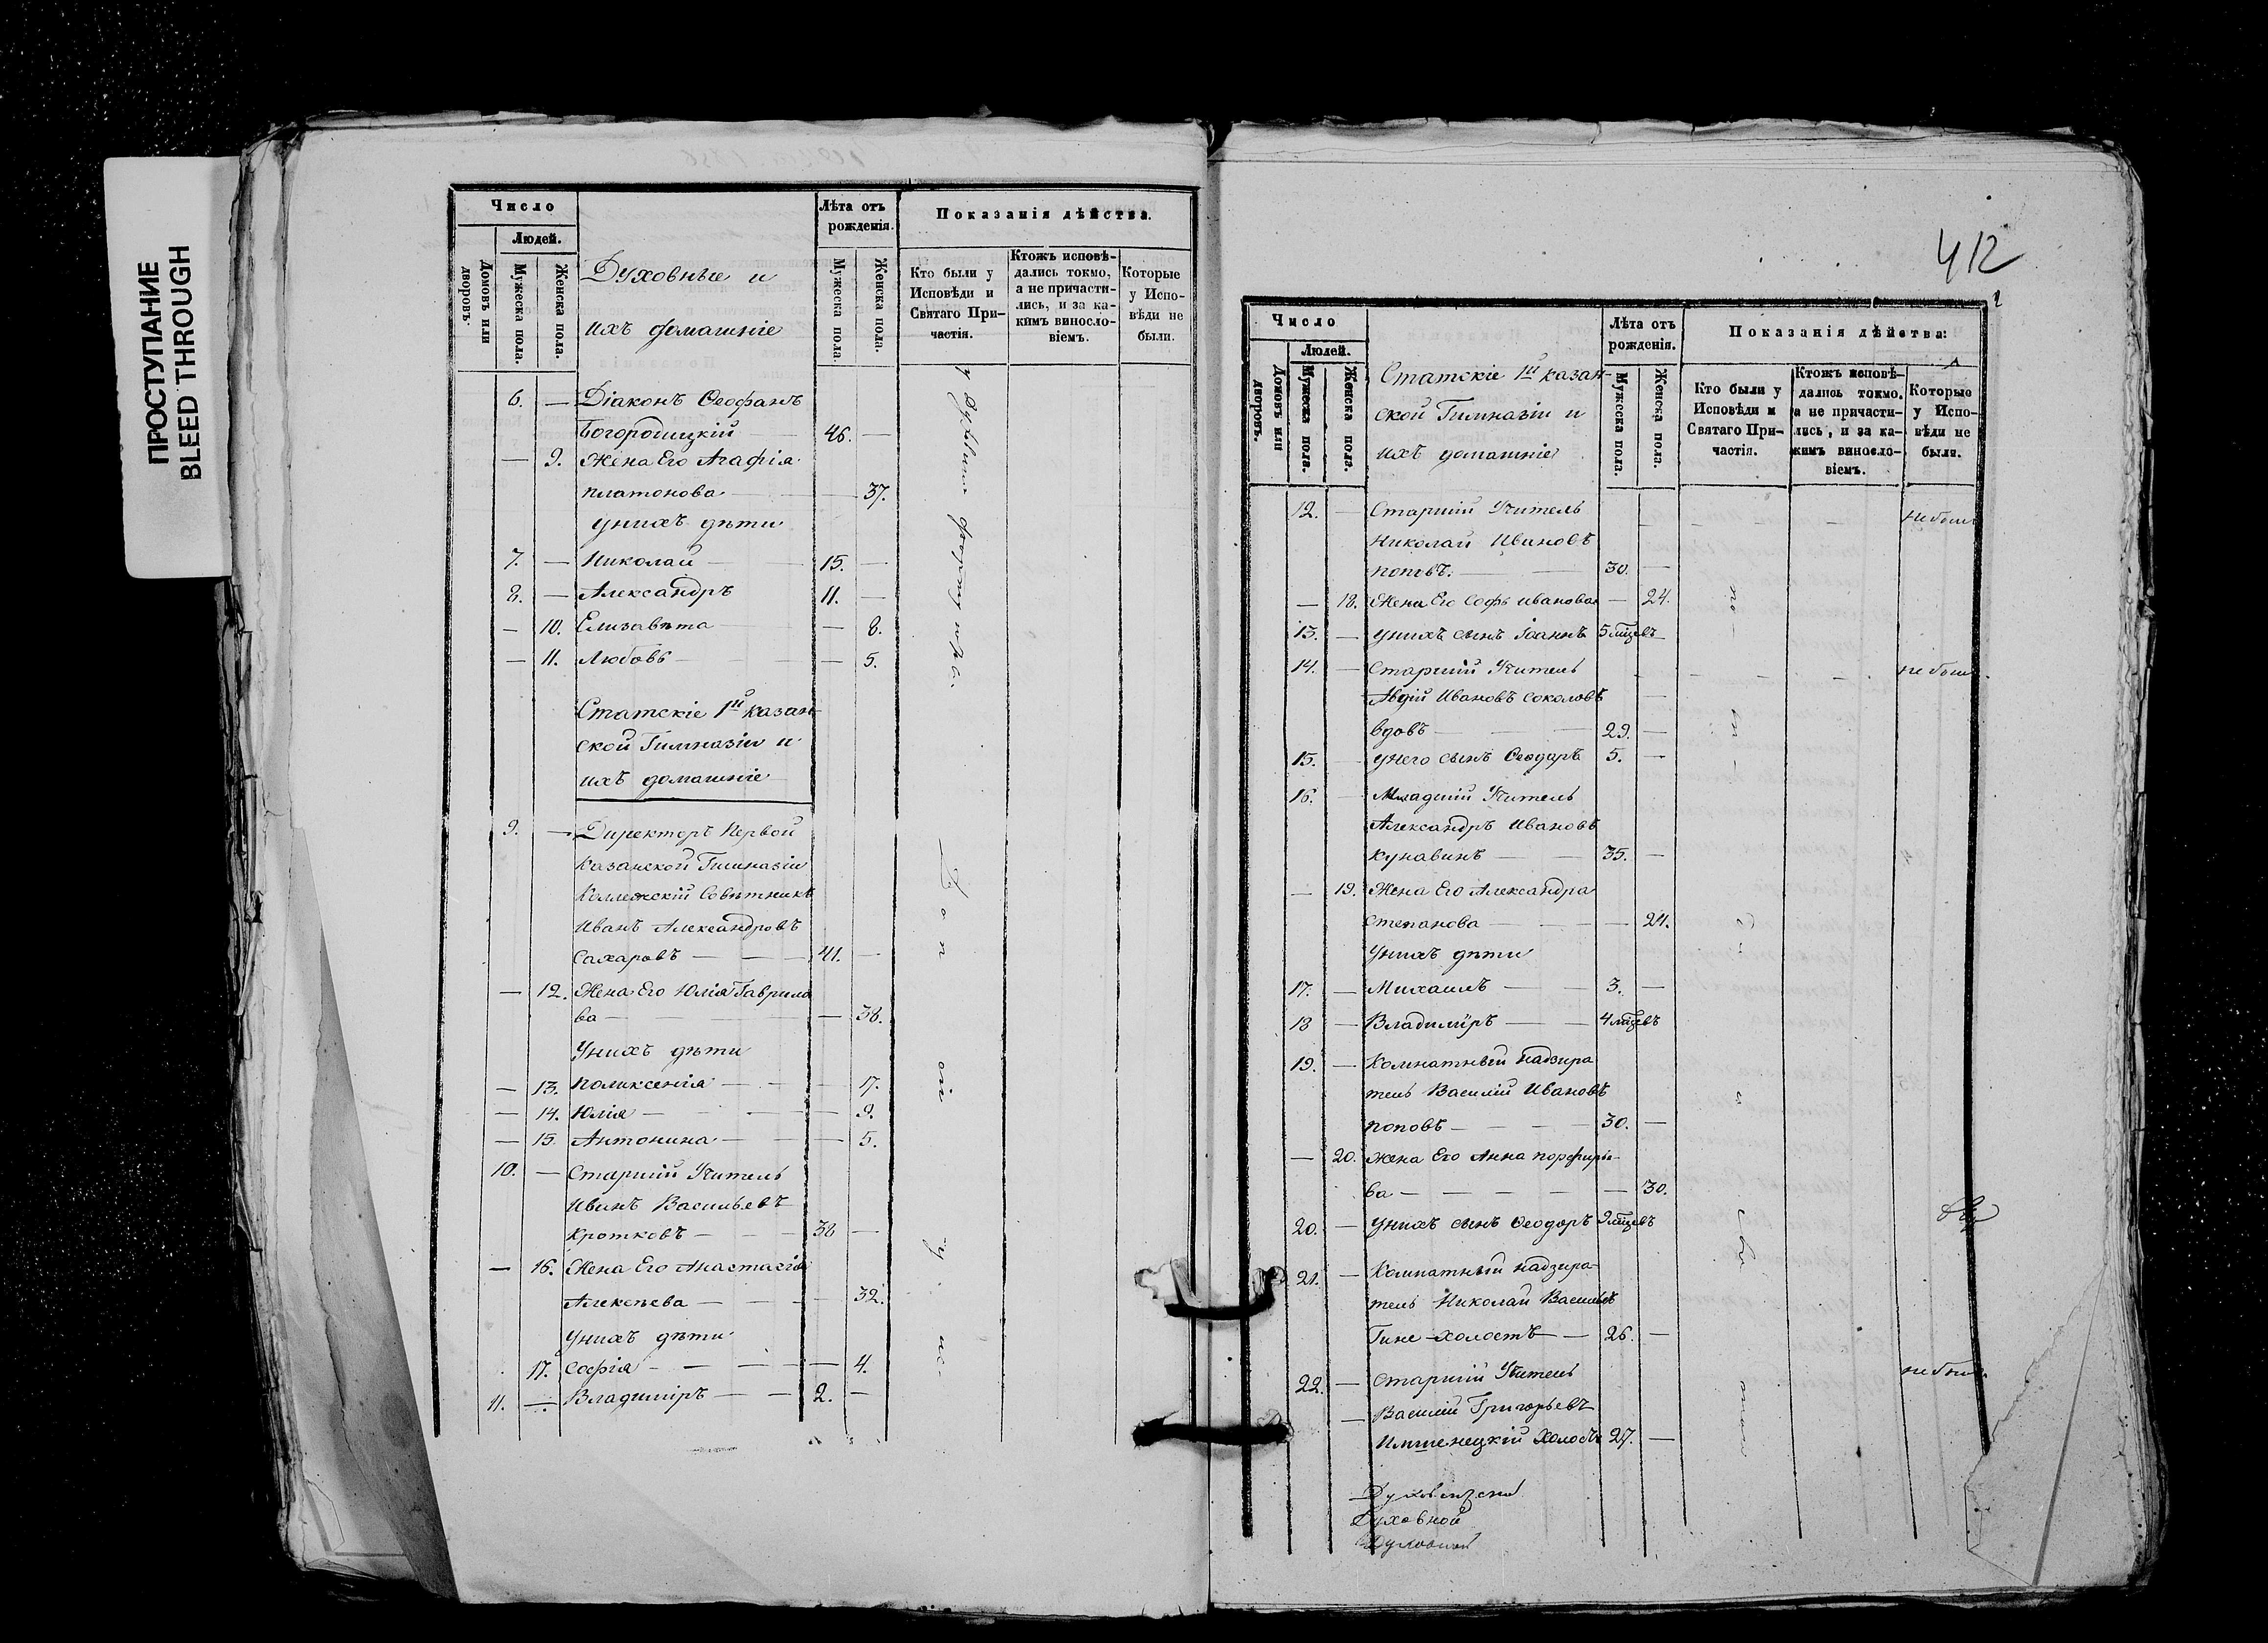 ПРОСТУПАНИЕ
BLEED THROUGH
Число
Людей.
Домовъ или дворовъ.
Мужеска пола.
Женска пола.
Духовные и
ихъ домашніе
Лѣта отъ рожденія.
Мужеска пола.
Женска пола.
Показанія дѣйства.
Кто были у Исповѣди и Святаго При-
частія.
Ктожъ исповѣ-
дались токмо,
а не причасти-
лись, и за ка-
кимъ виносло-
віемъ.
Которые
у Испо-
вѣди не
были.
6. — Діаконъ Ѳеофанъ
Богородицкій — 46. —
— 9. Жена Его Агафія
Платонова — — 37.
У нихъ дѣти
7. — Николай — 15. —
8. — Александръ 11. —
— 10. Елизавѣта — — 8.
— 11. Любовь — — 5.
Статскіе 1й Казан-
ской Гимназіи и
ихъ домашніе
9. — Директоръ Первой
Казанской Гимназіи
Коллежскій Совѣтникъ
Иванъ Александровъ
Сахаровъ — — — 41. —
— 12. Жена Его Юлія Гаврило
ва — — — — — 38.
У нихъ дѣти
— 13. Поликсенія — — — 17.
— 14. Юлія — — — — 9.
— 15. Антонина — — — 5.
10. — Старшій Учитель
Иванъ Васильевъ
Кротковъ — — — 38 —
— 16. Жена Его Анастасія
Алексѣева — — — 32.
У нихъ дѣти
17. Софія — — — — 4.
11. — Владиміръ — — 2. —
412
Число
Людей.
Домовъ или дворовъ.
Мужеска пола.
Женска пола.
Статскіе 1й Казан-
ской Гимназіи и
ихъ домашніе
Лѣта отъ рожденія.
Мужеска пола.
Женска пола.
Показанія дѣйства:
Кто были у
Исповѣди и
Святаго При-
частія.
Ктожъ исповѣ-
дались токмо,
а не причасти-
лись, и за ка-
кимъ виносло-
віемъ.
Которые
у Испо-
вѣди не
были.
12. — Старшій Учитель — — — не были
Николай Ивановъ
Поповъ. — — 30. —
— 18. Жена Его Софья Иванова — 24.
13. — У нихъ сынъ Іоаннъ 5 мѣсцевъ —
14. — Старшій Учитель — — — не были.
Авдій Ивановъ Соколовъ —
вдовъ — — 29. —
15. — У него сынъ Ѳеодоръ 5. —
16. — Младшій Учитель
Александръ Ивановъ
Кунавинъ — — 35. —
— 19. Жена Его Александра
Степанова — — — 24.
У нихъ дѣти
17. — Михаилъ — — 3. —
18 — Владиміръ — — 4 мѣсцевъ
19. — Комнатный надзира
тель Василій Ивановъ
Поповъ — — — 30. —
— 20. Жена Его Анна Порфирье-
ва — — — — — 30.
20. — У нихъ сынъ Ѳеодоръ 9 мѣсцевъ
21. — Комнатный надзира-
тель Николай Васильевъ
Гине — холостъ — 26. —
22. — Старшій Учитель не были.
— Василій Григорьевъ
Имшенецкій Холостъ 27. —
Духовной
Духовной